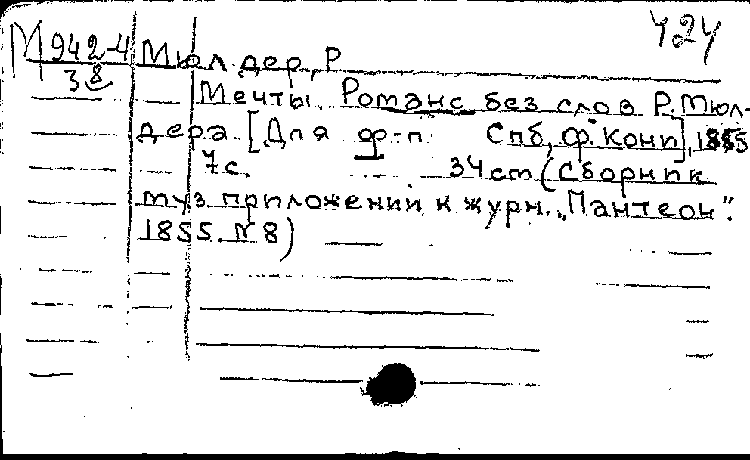 424
М 942-4 Мюлдер, Р
38
Мечты. Романс без слов Р. Мюл-
дера. [Для ф.-п. Спб, Ф. Кони], 1855
7с. 34 cm (Сборник
муз приложений к журн. „Пантеон".
1855. № 8)